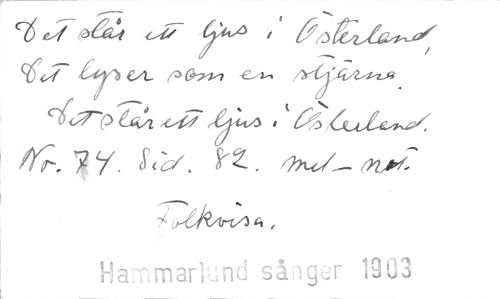 Det står ett ljus i Österland,
Det lyser som en stjärna.
Det står ett ljus i Österland.
No. 74. Sid. 82. mel-not.
Folkvisa.
Hammarlund sånger 1903